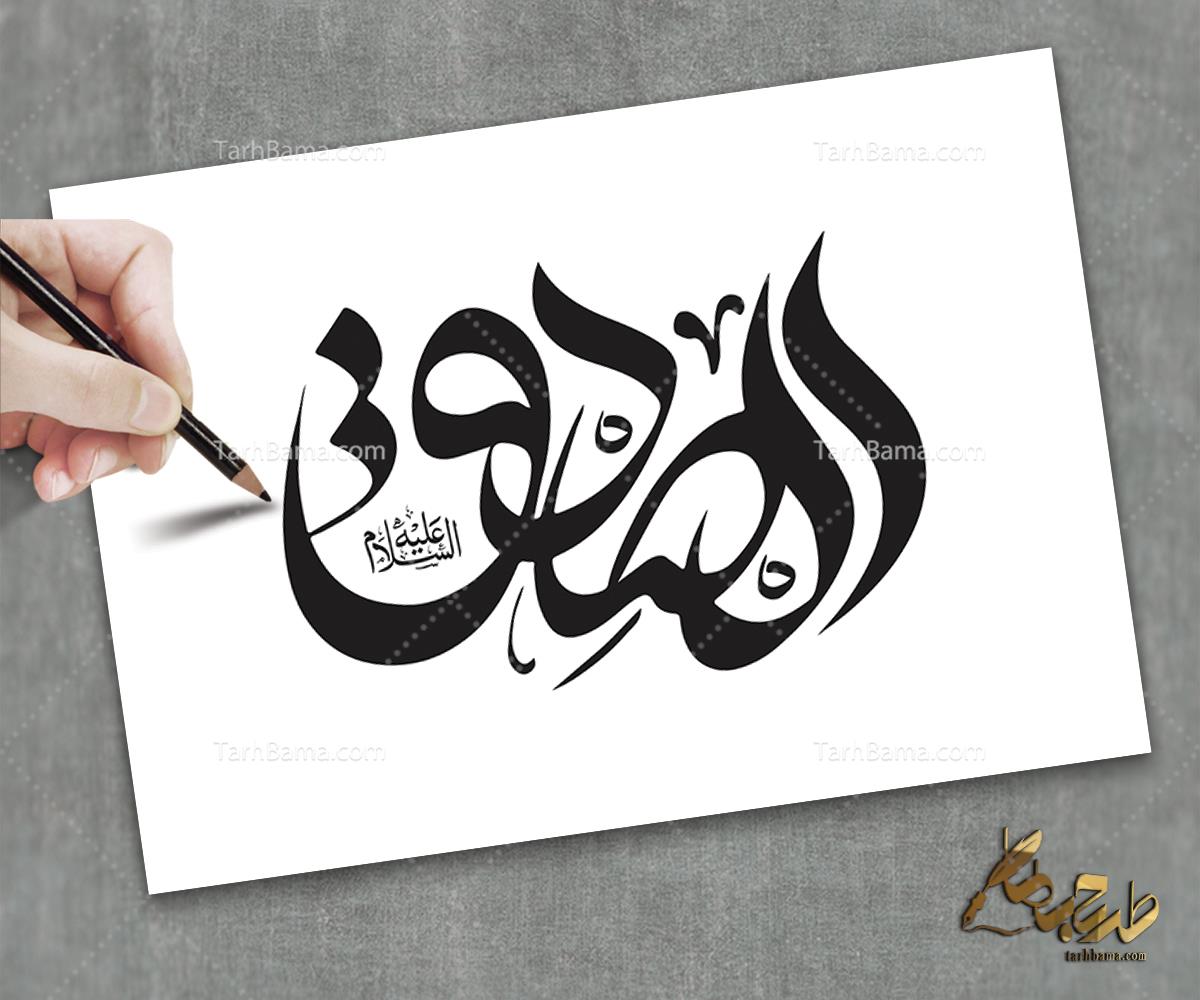 TarhBama.com TarhBama.com
الصادق
TarhBama.com TarhBama.com
عليه
السلام
TarhBama.com TarhBama.com
طرح باما
tarhbama.com